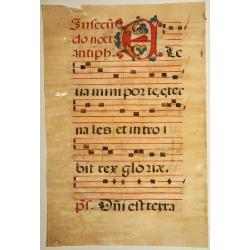 In secun
do noct
antiph. E Le
ua mini por te, eter
na les et in tro i
bit rex glo riæ.
ps. Dñi est terra